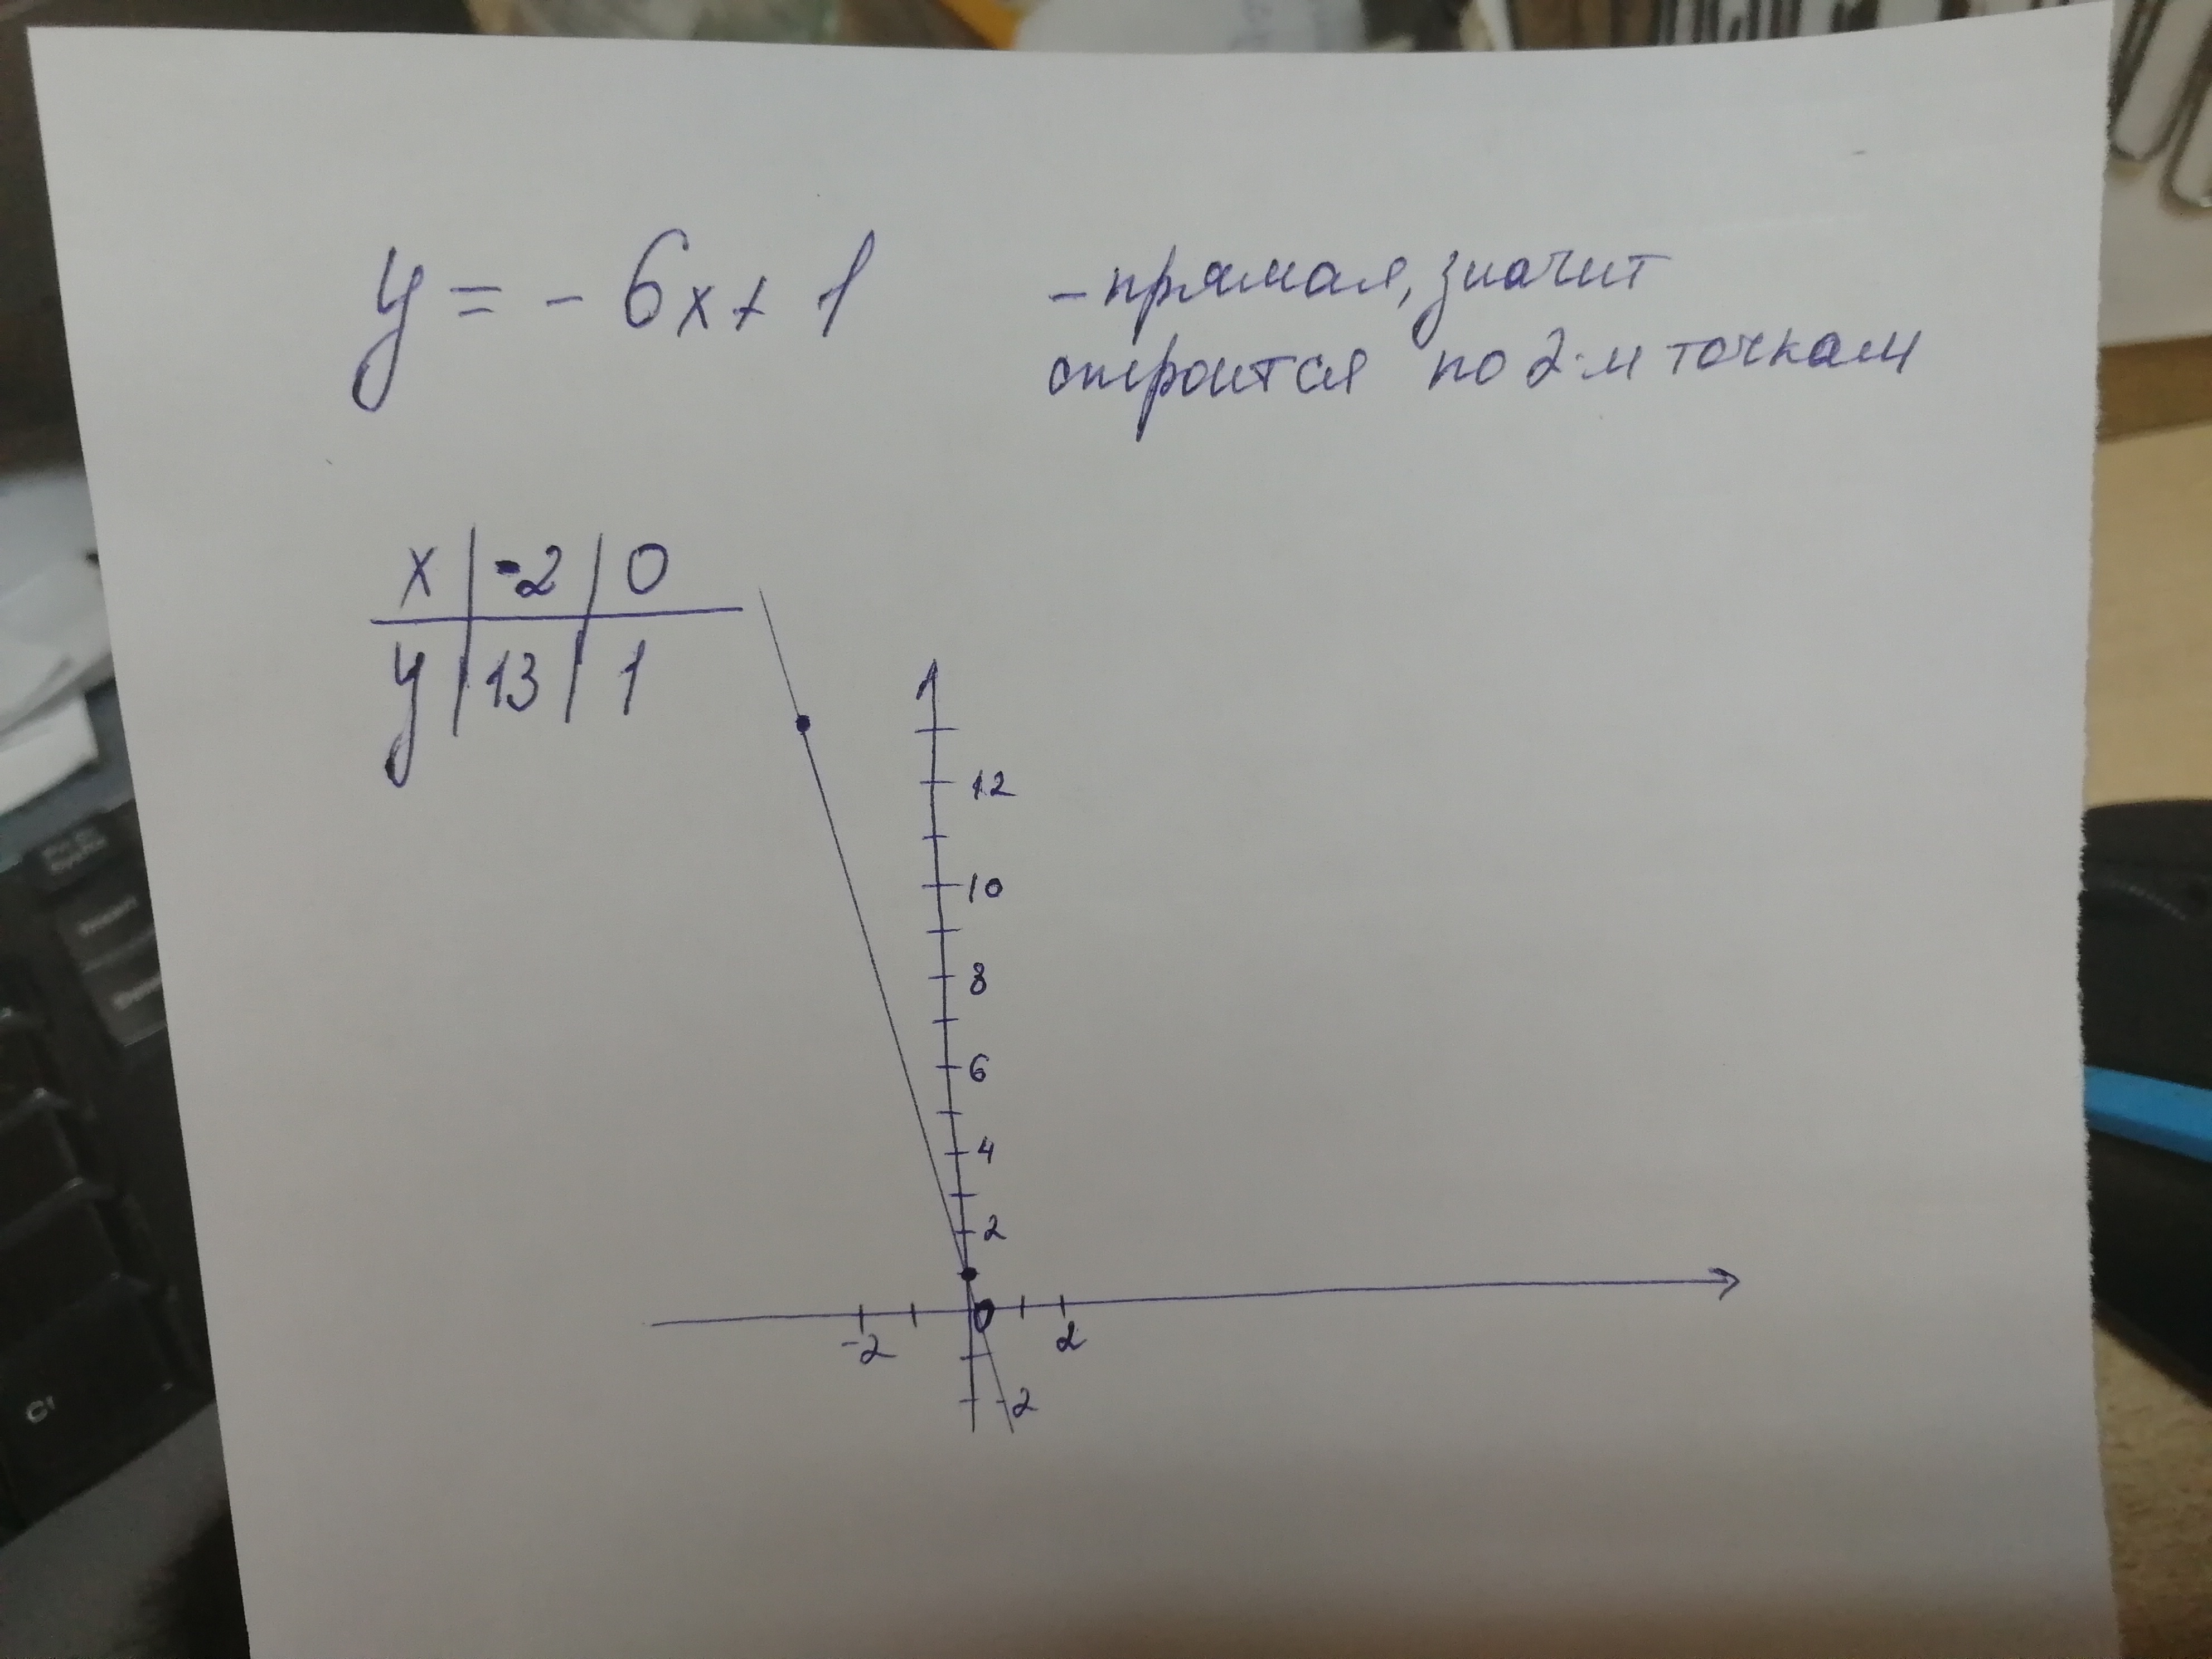 y = - 6x + 1
- прямая, значит
строится по 2-м точкам
x | -2 | 0
y | 13 | 1
12
10
8
6
4
2
-2 0 2
-2